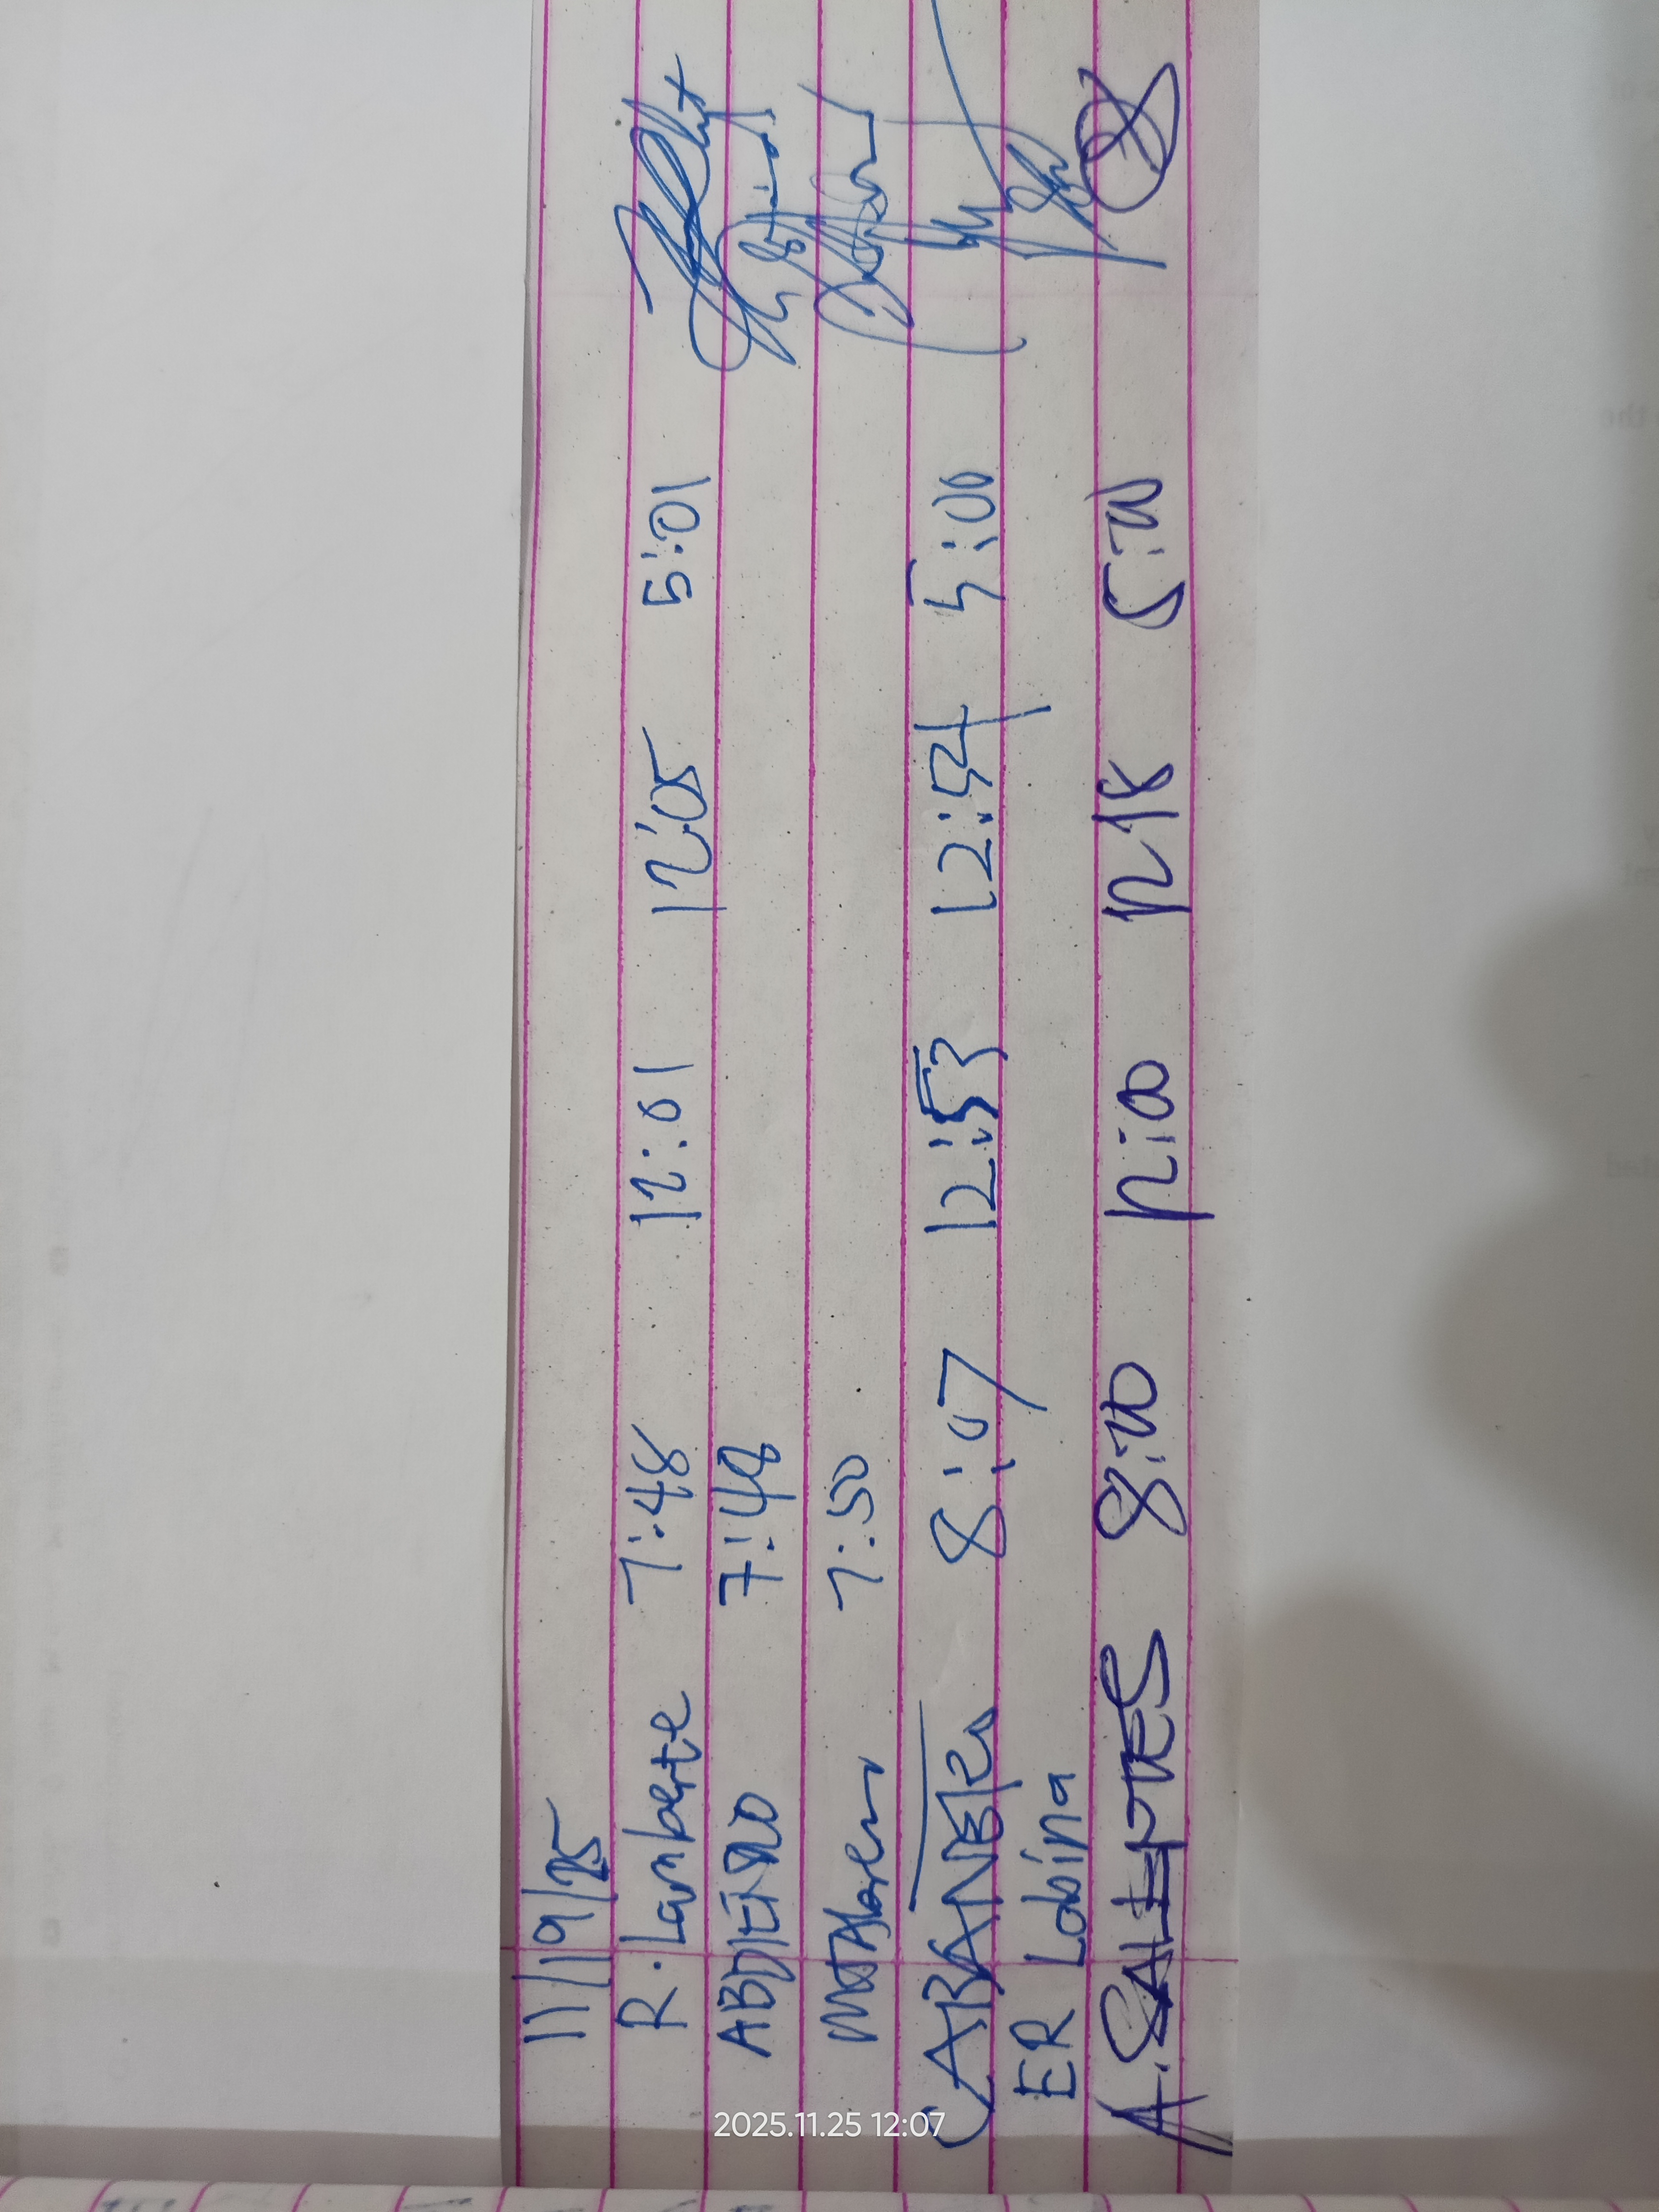 11/19/25
R. Lamberte 7:48 12:01 12:05 5:01
7:48
7:50
CABANEZ 8:07 12:53 12:54 5:00
ER Lobina
A. 8:20 12:00 12:18 5:21
2025.11.25 12:07